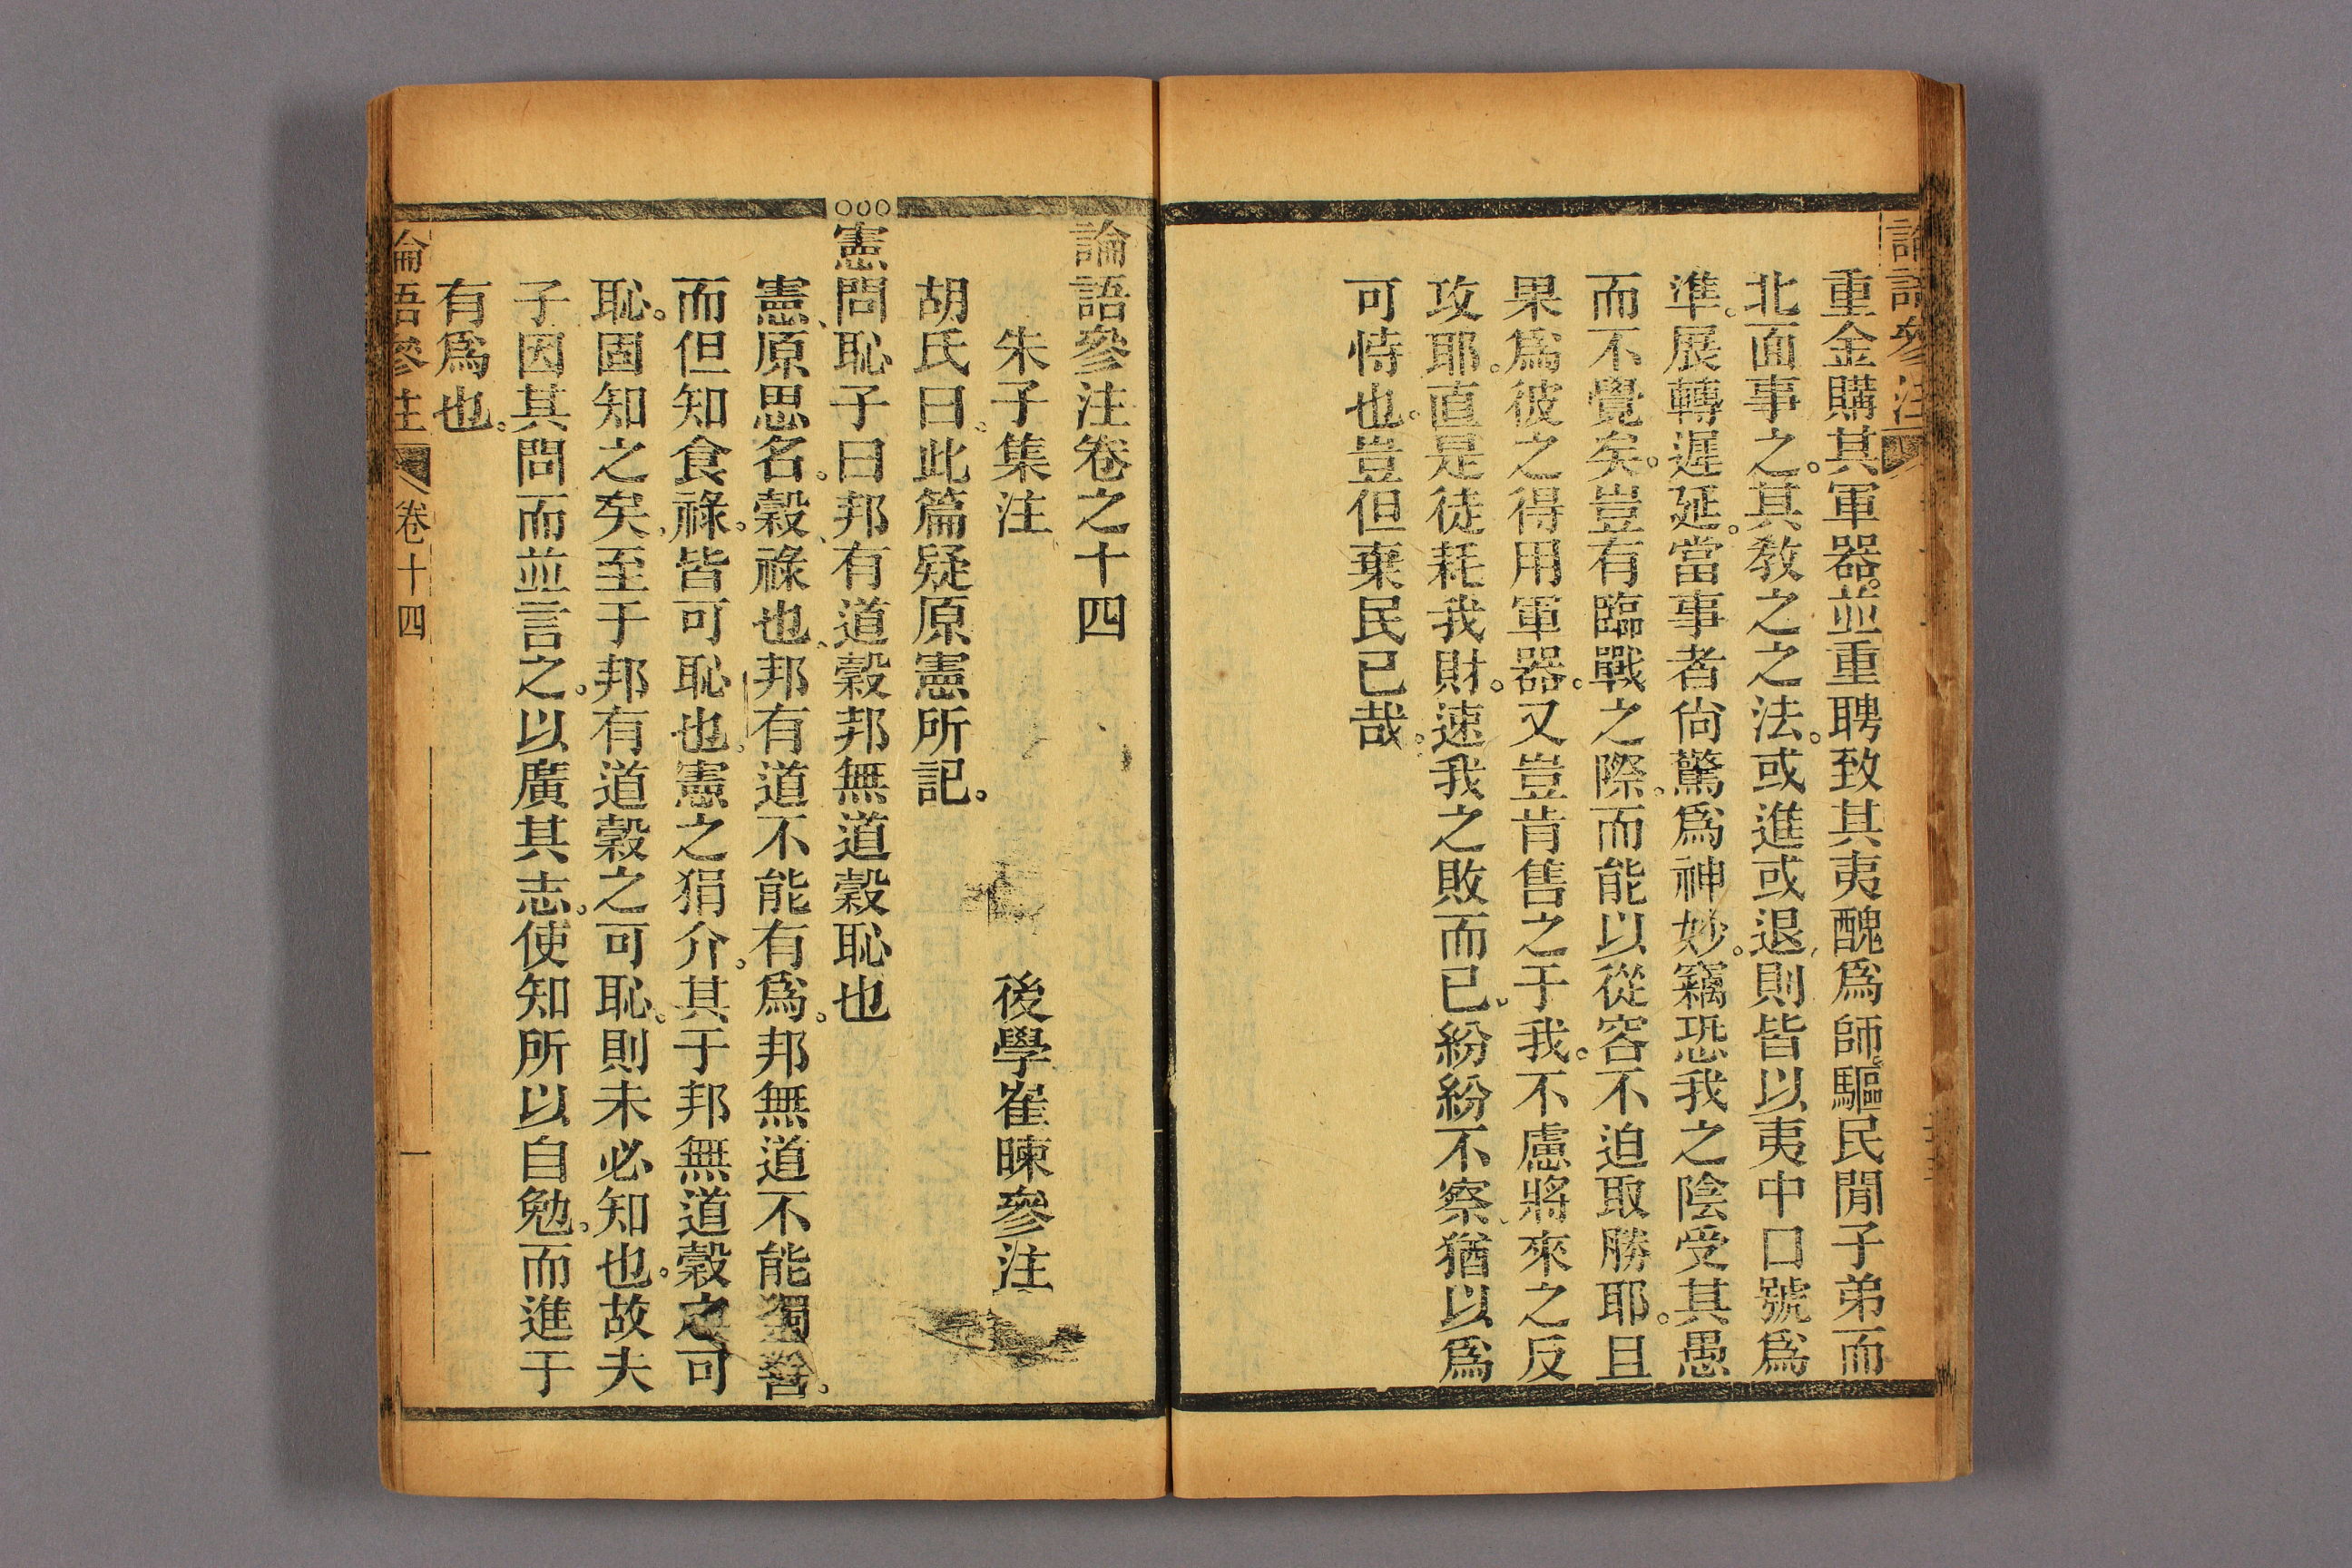 重金購其軍器。並重聘致其夷醜爲師。驅民閒子弟而
北面事之。其教之之法。或進或退、則皆以夷中口號爲
準。展轉遲延。當事者尙驚爲神妙。竊恐我之陰受其愚
而不覺矣。豈有臨戰之際。而能以從容不迫取勝耶。且
果爲彼之得用軍器。又豈肯售之于我。不慮將來之反
攻耶。直是徒耗我財。速我之敗而已。紛紛不察、猶以爲
可恃也。豈但棄民已哉。
論語參注卷之十四
朱子集注 後學崔暕參注
胡氏曰。此篇疑原憲所記。
○○○憲問恥子曰邦有道穀邦無道穀恥也
憲、原思名。穀、祿也、邦有道不能有爲。邦無道不能獨善。
而但知食祿。皆可恥也。憲之狷介。其于邦無道穀之可
恥。固知之矣、至于邦有道穀之可恥。則未必知也。故夫
子因其問而並言之。以廣其志。使知所以自勉。而進于
有爲也。
論語參注 卷十四 一